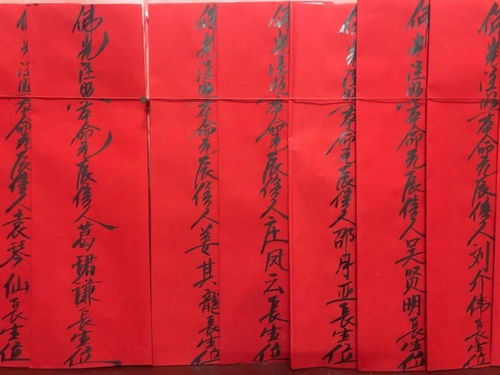 佛光注照本命元辰信人刘介伟長生位
佛光注照本命元辰信人吴贤明長生位
佛光注照本命元辰信人邵月亚長生位
佛光注照本命元辰信人庄凤云長生位
佛光注照本命元辰信人姜其龍長生位
佛光注照本命元辰信人葛謙長生位
佛光注照本命元辰信人袁琴仙長生位